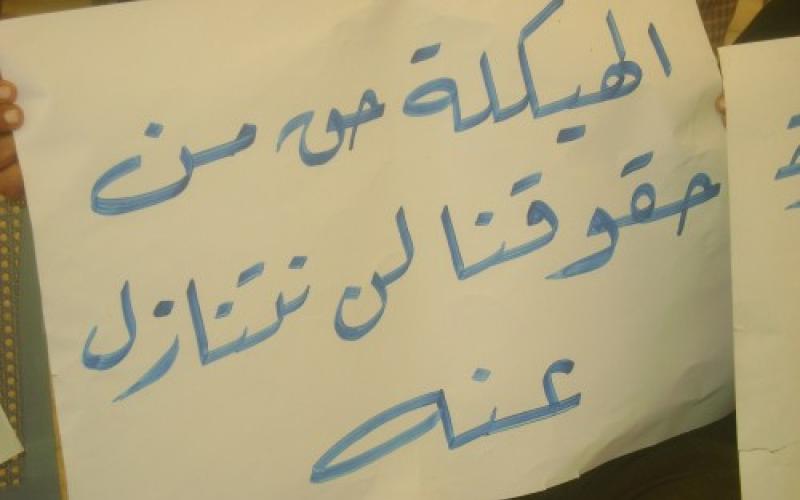 الهيكلة حق من
حقوقنا لن نتنازل
عنه